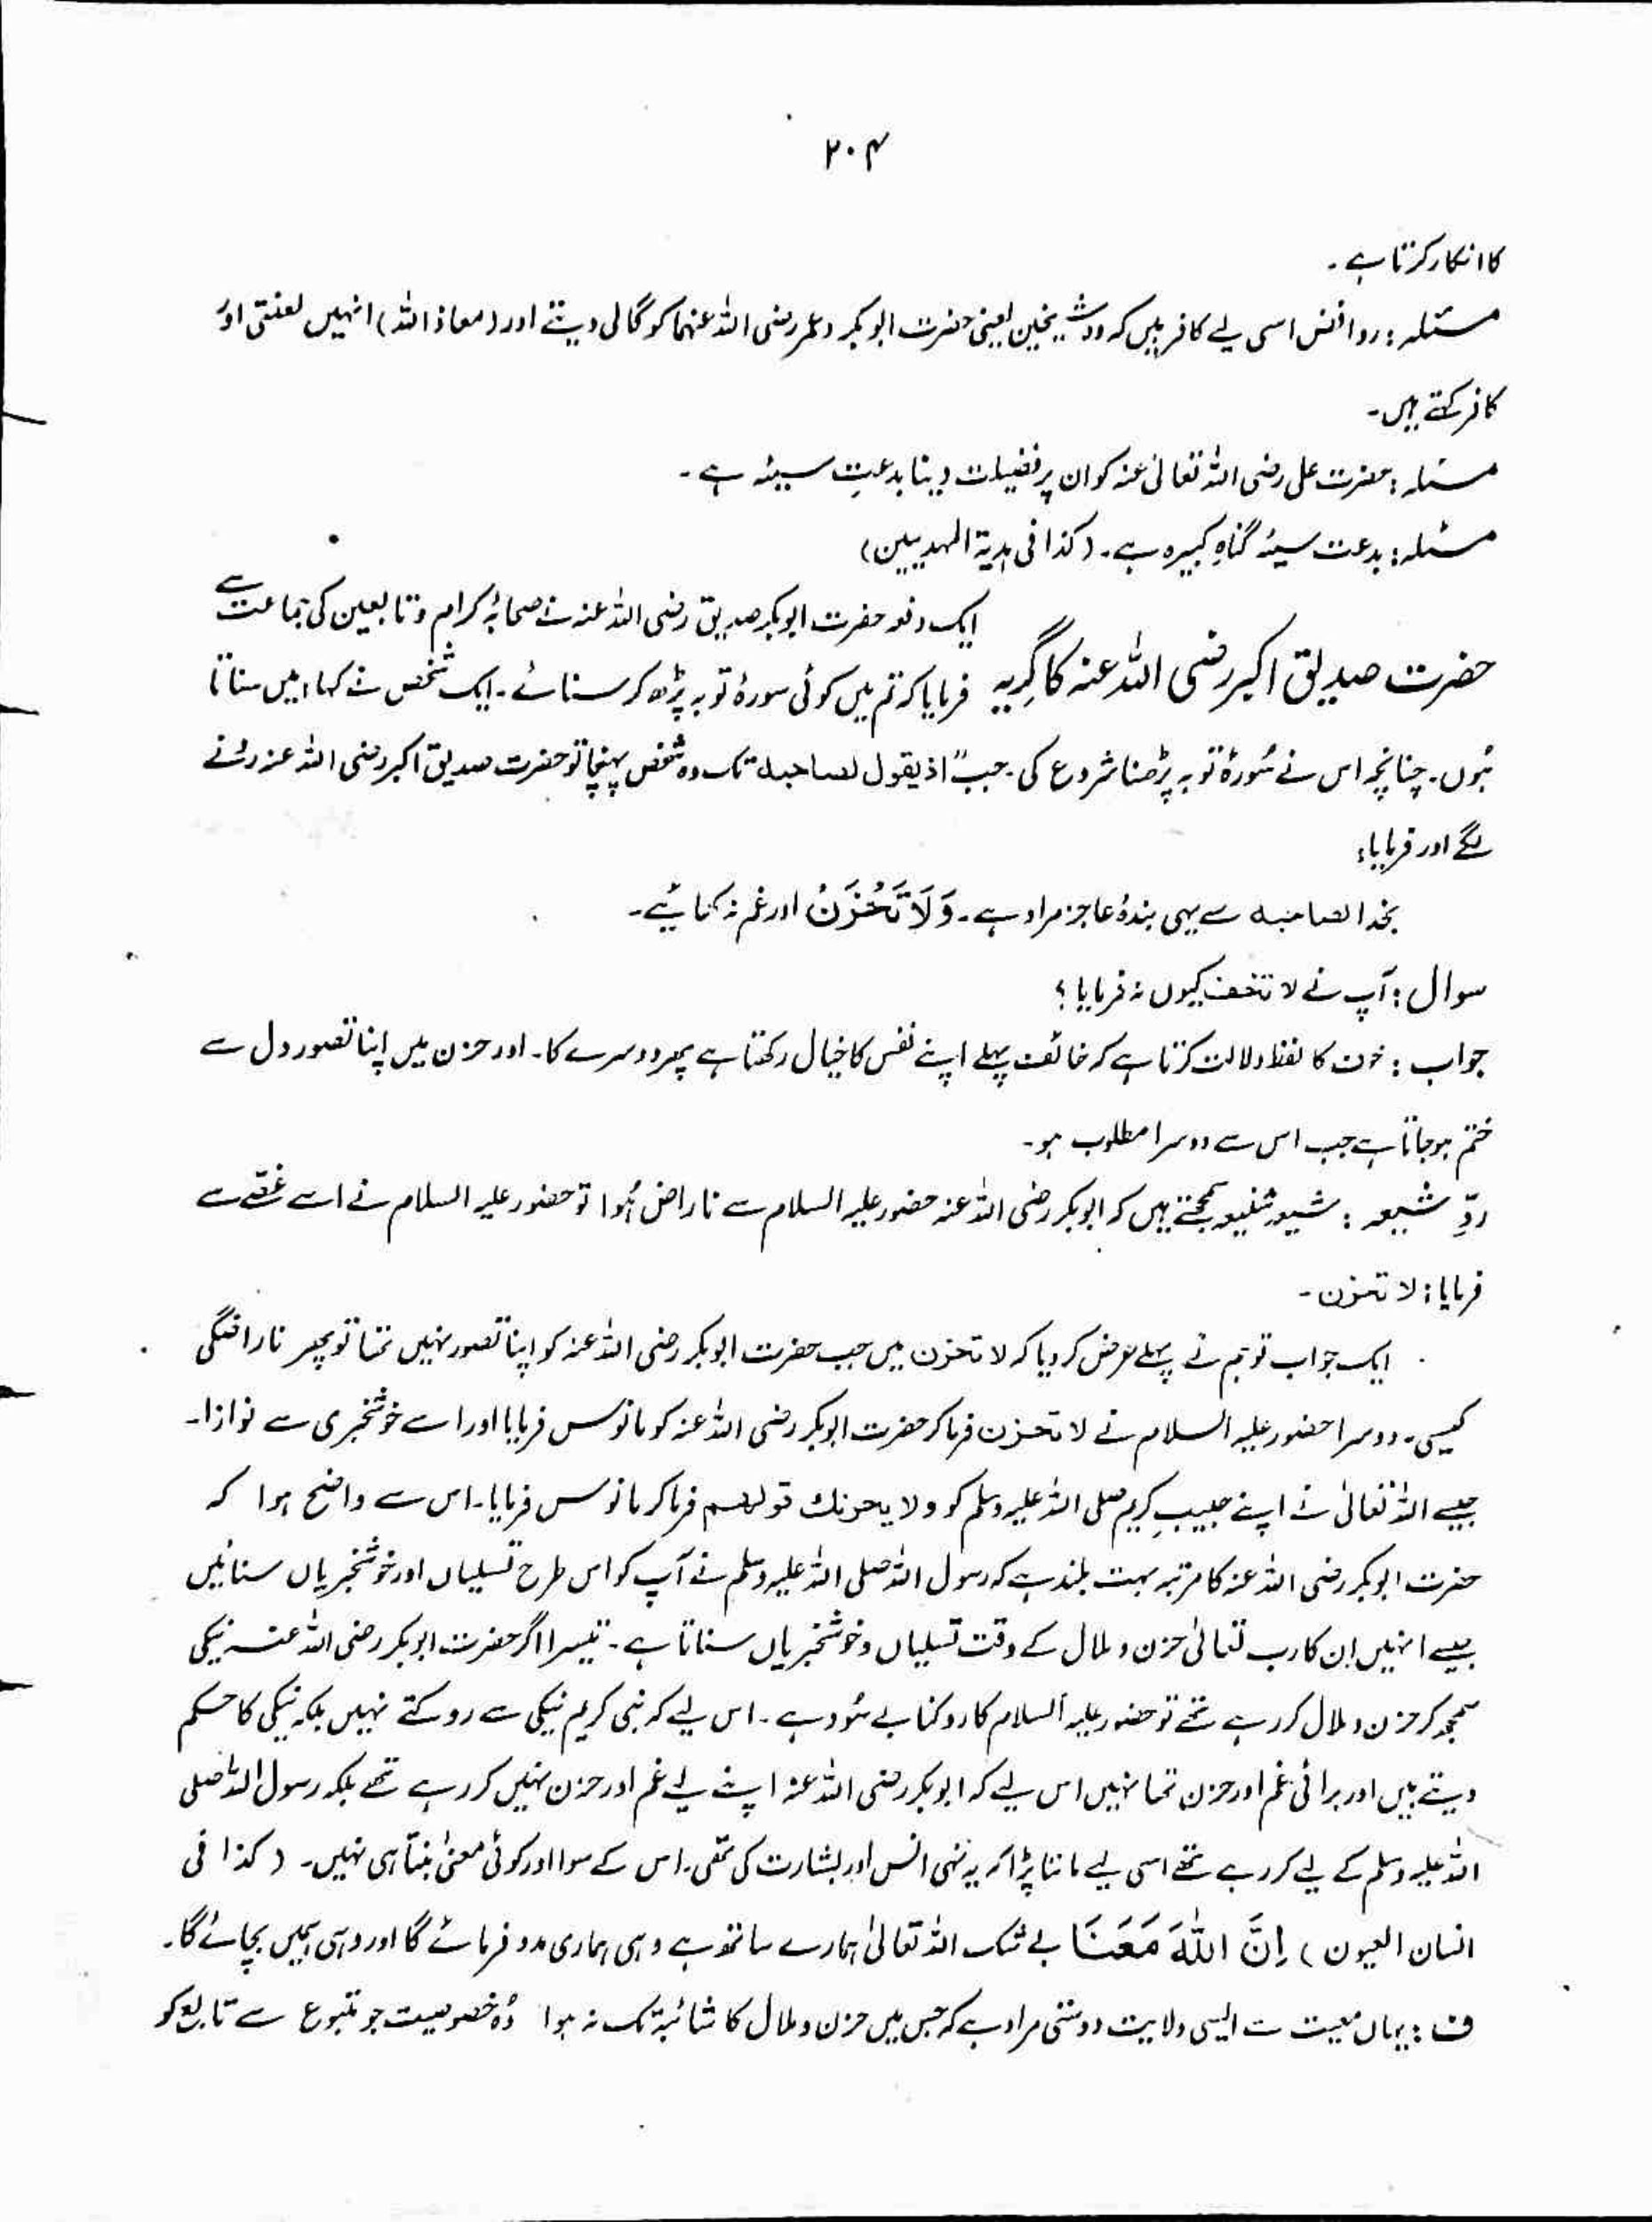 ۲۰۴
کا انکار کرتا ہے۔
مسئلہ: روافض اسی لیے کافر ہیں کہ وہ شیخین یعنی حضرت ابوبکر وعمر رضی اللہ عنہما کو گالی دیتے اور (معاذ اللہ) انہیں لعنتی اور
کافر کہتے ہیں۔
مسئلہ: حضرت علی رضی اللہ تعالیٰ عنہ کو ان پر فضیلت دینا بدعتِ سیئہ ہے۔
مسئلہ: بدعت سیئہ گناہِ کبیرہ ہے۔ (کذا فی ہدیۃ المہدیین)
حضرت صدیق اکبر رضی اللہ عنہ کا گریہ
ایک دفعہ حضرت ابوبکر صدیق رضی اللہ عنہ نے صحابۂ کرام و تابعین کی جماعت سے
فرمایا کہ تم میں کوئی سورۂ توبہ پڑھ کر سنائے۔ ایک شخص نے کہا، میں سناتا
ہُوں۔ چنانچہ اس نے سُورۂ توبہ پڑھنا شروع کی۔ جب "اذ یقول لصاحبہ" تک وہ شخص پہنچا تو حضرت صدیق اکبر رضی اللہ عنہ رونے
لگے اور فرمایا:
بخدا لصاحبہ سے یہی بندۂ عاجز مراد ہے۔ وَلَا تَحْزَنْ اور غم نہ کھائیے۔
سوال: آپ نے لا تخف کیوں نہ فرمایا؟
جواب: خوف کا لفظ دلالت کرتا ہے کہ خائف پہلے اپنے نفس کا خیال رکھتا ہے پھر دوسرے کا۔ اور حزن میں اپنا تصور دل سے
ختم ہو جاتا ہے جب اس سے دوسرا مطلوب ہو۔
ردِّ شیعہ: شیعہ شنیعہ سمجھتے ہیں کہ ابوبکر رضی اللہ عنہ حضور علیہ السلام سے ناراض ہُوا تو حضور علیہ السلام نے اسے غصّے سے
فرمایا: لا تحزن۔
ایک جواب تو ہم نے پہلے عرض کر دیا کہ لا تحزن میں جب حضرت ابوبکر رضی اللہ عنہ کو اپنا تصور نہیں تھا تو پھر ناراضگی
کیسی۔ دوسرا حضور علیہ السلام نے لا تحزن فرما کر حضرت ابوبکر رضی اللہ عنہ کو مانوس فرمایا اور اسے خوشخبری سے نوازا۔
جیسے اللہ تعالیٰ نے اپنے حبیبِ کریم صلی اللہ علیہ وسلم کو ولا یحزنك قولھم فرما کر مانوس فرمایا۔ اس سے واضح ہوا کہ
حضرت ابوبکر رضی اللہ عنہ کا مرتبہ بہت بلند ہے کہ رسول اللہ صلی اللہ علیہ وسلم نے آپ کو اس طرح تسلیاں اور خوشخبریاں سنائیں
جیسے انہیں ان کا رب تعالیٰ حزن و ملال کے وقت تسلیاں و خوشخبریاں سناتا ہے۔ تیسرا اگر حضرت ابوبکر رضی اللہ عنہ نیکی
سمجھ کر حزن و ملال کر رہے تھے تو حضور علیہ السلام کا روکنا بے سُود ہے۔ اس لیے کہ نبی کریم نیکی سے روکتے نہیں بلکہ نیکی کا حکم
دیتے ہیں اور برائی غم اور حزن تھا نہیں اس لیے کہ ابوبکر رضی اللہ عنہ اپنے لیے غم اور حزن نہیں کر رہے تھے بلکہ رسول اللہ صلی
اللہ علیہ وسلم کے لیے کر رہے تھے اسی لیے ماننا پڑا کہ یہ نہی انس اور بشارت کی تھی۔ اس کے سوا اور کوئی معنیٰ بنتا ہی نہیں۔ (کذا فی
انسان العیون) اِنَّ اللّٰہَ مَعَنَا بے شک اللہ تعالیٰ ہمارے ساتھ ہے وہی ہماری مدد فرمائے گا اور وہی ہمیں بچائے گا۔
ف: یہاں معیت سے ایسی ولایت دوستی مراد ہے کہ جس میں حزن و ملال کا شائبہ تک نہ ہو، وُہ خصوصیت جو متبوع سے تابع کو